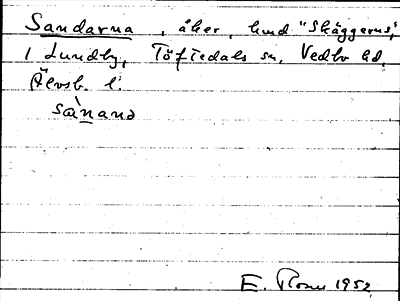 Sandarna, åker, hmd "Skäggerns",
i Lundby, Töftedals sn, Vedbo hd,
Älvsb. l.
sànanə
E. Rosn 1952